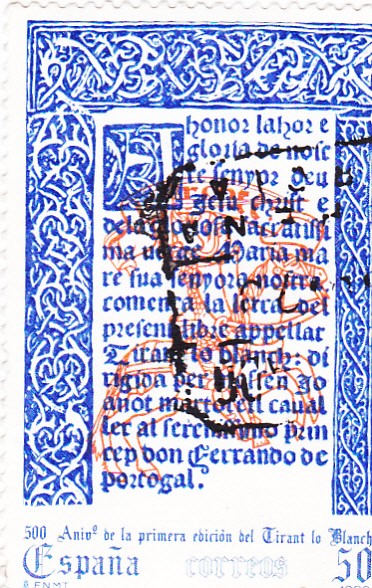 A honor lahor e
gloria de nostre
senyor deu
Jesu christ e
dela gloriosa sacratissi
ma Maria ma
re sua senyora nostra
comença la letra del
present libre appellat
Tirant lo blanch: di
rigida per Mossen Jo
anot martorell caual
ler al serenissimo prin
cep don Ferrando de
portogal.
500 Anivº de la primera edición del Tirant lo Blanch
España correos 50
F.N.M.T.